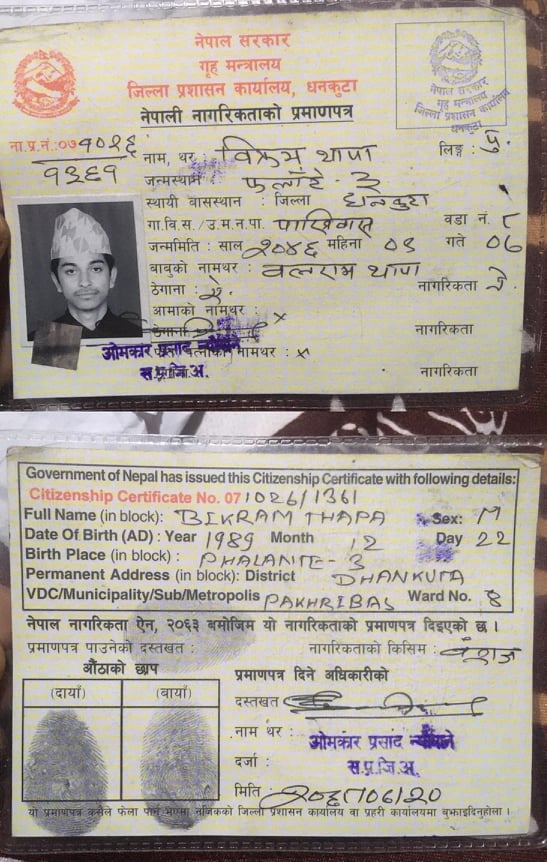 नेपाल सरकार
गृह मन्त्रालय
जिल्ला प्रशासन कार्यालय, धनकुटा
नेपाली नागरिकताको प्रमाणपत्र
नेपाल सरकार
गृह मन्त्रालय
जिल्ला प्रशासन कार्यालय
धनकुटा
ना.प्र.नं.:०७१०२६
१३६१
लिङ्ग : पु.
नाम, थर : विक्रम थापा
जन्मस्थान : फलाँटे - ३
स्थायी बासस्थान : जिल्ला धनकुटा
गा.वि.स./उ.म.न.पा. पाख्रिबास वडा नं. ८
जन्ममिति : साल २०४६ महिना ०९ गते ०६
बाबुको नामथर : बलराम थापा
ठेगाना : ऐ. नागरिकता ने.
आमाको नामथर : x
ठेगाना नागरिकता
नामथर : x
ओमकार प्रसाद
स.प्र.जि.अ.
नागरिकता
Government of Nepal has issued this Citizenship Certificate with following details:
Citizenship Certificate No. 071026/1361
Full Name (in block): BIKRAM THAPA Sex: M
Date Of Birth (AD) : Year 1989 Month 12 Day 22
Birth Place (in block) : PHALANTE-3
Permanent Address (in block): District DHANKUTA
VDC/Municipality/Sub/Metropolis PAKHRIBAS Ward No. 8
नेपाल नागरिकता ऐन, २०६३ बमोजिम यो नागरिकताको प्रमाणपत्र दिइएको छ ।
प्रमाणपत्र पाउनेको दस्तखत : नागरिकताको किसिम : वंशज
औंठाको छाप
प्रमाणपत्र दिने अधिकारीको
(दायाँ) (बायाँ)
दस्तखत
नाम थर : ओमकार प्रसाद
दर्जा : स.प्र.जि.अ.
मिति
यो प्रमाणपत्र कसैले फेला पारेमा नजिकको जिल्ला प्रशासन कार्यालय वा प्रहरी कार्यालयमा बुझाइदिनुहोला ।